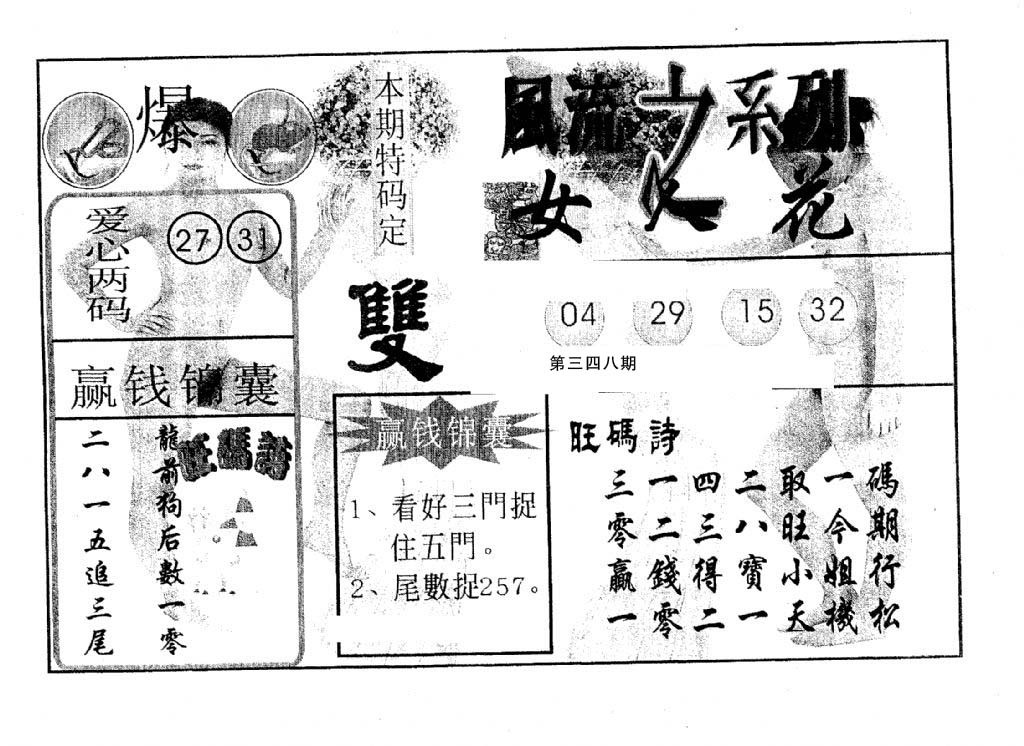 風流之系列
女人花
爆
爱心两码
27 31
本期特码定
雙
04 29 15 32
第三四八期
赢钱锦囊
旺碼詩
龍前狗后數一零
二八一五追三尾
赢钱锦囊
1、看好三門捉
住五門。
2、尾數捉257。
旺碼詩
三一四二取一碼
零二三八旺今期
贏錢得寶小姐行
一零二一天機松